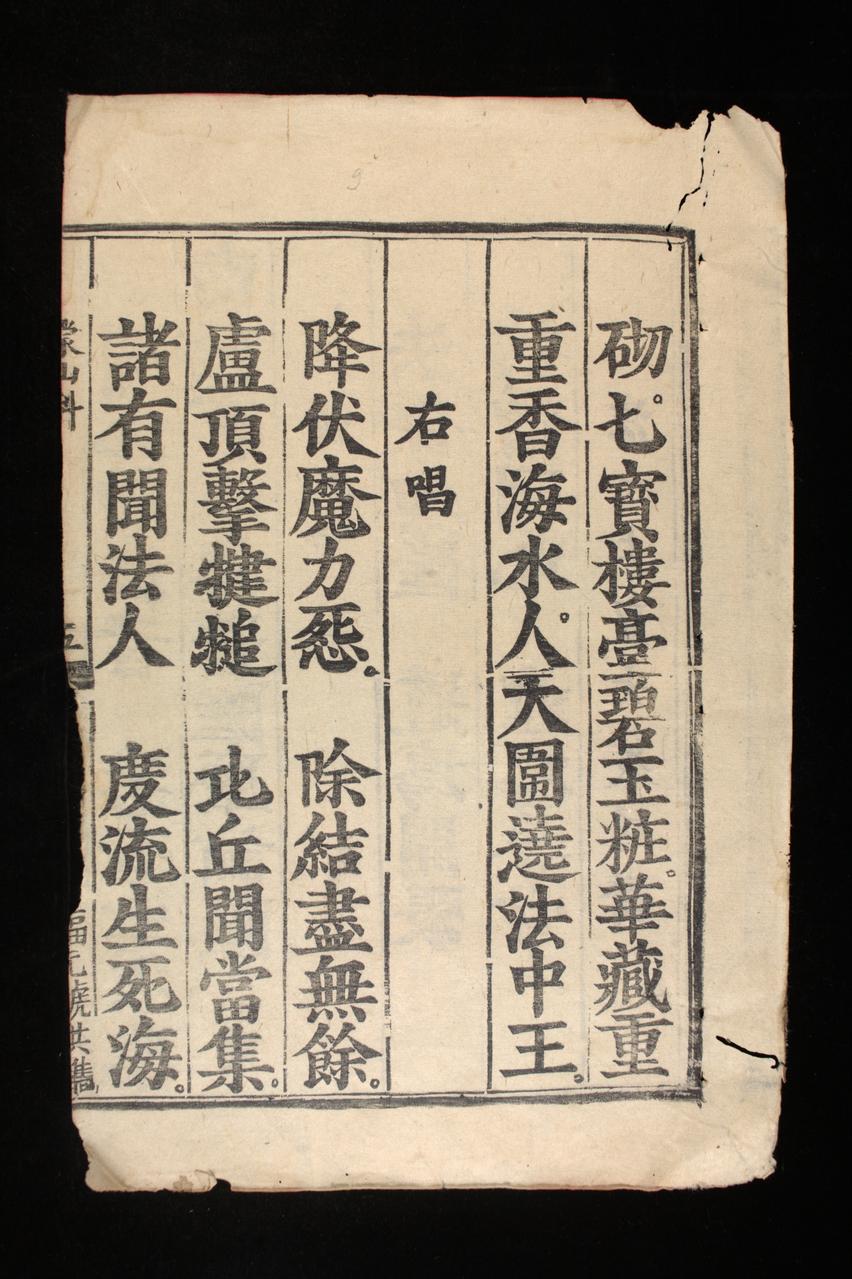 砌。七寶樓臺碧玉粧。華藏重
重香海水人。天圍遶法中王。
右唱
降伏魔力怨。　除結盡無餘。
盧頂擊犍槌　比丘聞當集。
諸有聞法人　度流生死海。
蒙山科
五